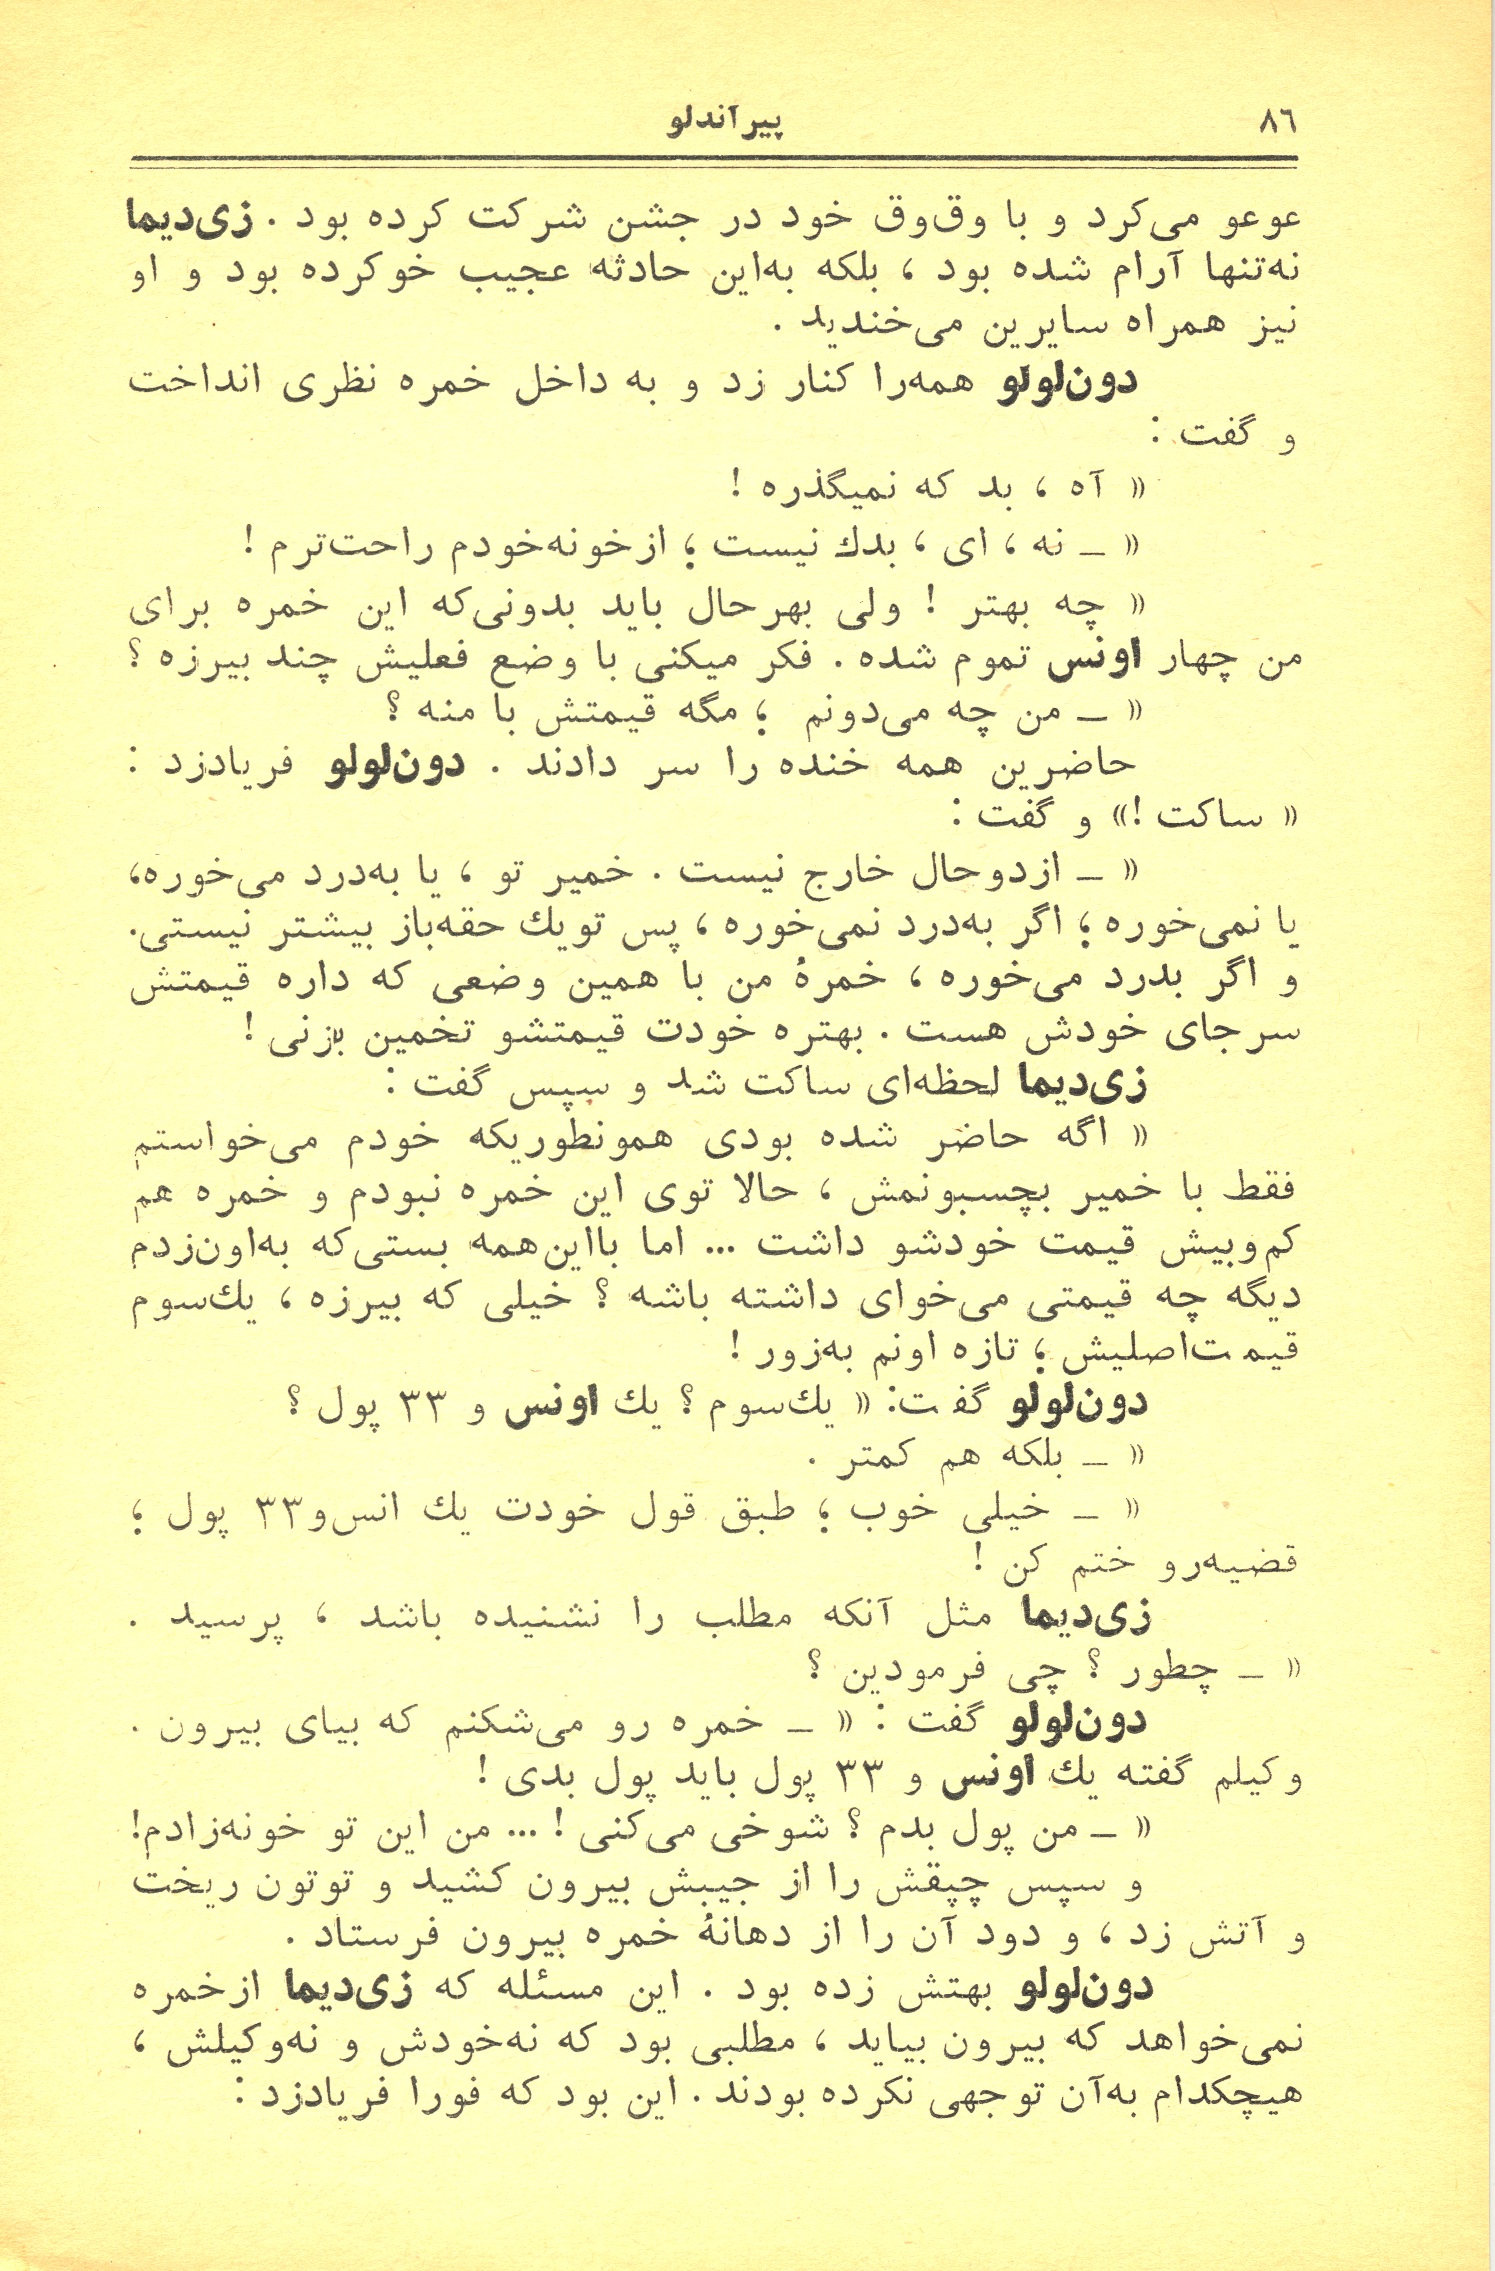 ۸٦
پیرآندلو
عوعو می‌کرد و با وق‌وق خود در جشن شرکت کرده بود . زی‌دیما
نه‌تنها آرام شده بود ، بلکه به‌این حادثه عجیب خوکرده بود و او
نیز همراه سایرین می‌خندید .
دون‌لولو همه‌را کنار زد و به داخل خمره نظری انداخت
و گفت :
« آه ، بد که نمیگذره !
« ــ نه ، ای ، بدك نیست ؛ ازخونه‌خودم راحت‌ترم !
« چه بهتر ! ولی بهرحال باید بدونی‌که این خمره برای
من چهار اونس تموم شده . فکر میکنی با وضع فعلیش چند بیرزه ؟
« ــ من چه می‌دونم ؛ مگه قیمتش با منه ؟
حاضرین همه خنده را سر دادند . دون‌لولو فریادزد :
« ساکت !» و گفت :
« ــ ازدوحال خارج نیست . خمیر تو ، یا به‌درد می‌خوره،
یا نمی‌خوره ؛ اگر به‌درد نمی‌خوره ، پس تویك حقه‌باز بیشتر نیستی.
و اگر بدرد می‌خوره ، خمرهٔ من با همین وضعی که داره قیمتش
سرجای خودش هست . بهتره خودت قیمتشو تخمین بزنی !
زی‌دیما لحظه‌ای ساکت شد و سپس گفت :
« اگه حاضر شده بودی همونطوریکه خودم می‌خواستم
فقط با خمیر بچسبونمش ، حالا توی این خمره نبودم و خمره هم
کم‌وبیش قیمت خودشو داشت ... اما بااین‌همه بستی‌که به‌اون‌زدم
دیگه چه قیمتی می‌خوای داشته باشه ؟ خیلی که بیرزه ، یك‌سوم
قیمت‌اصلیش ؛ تازه اونم به‌زور !
دون‌لولو گفت: « یك‌سوم ؟ یك اونس و ۳۳ پول ؟
« ــ بلکه هم کمتر .
« ــ خیلی خوب ؛ طبق قول خودت یك انس‌و۳۳ پول ؛
قضیه‌رو ختم کن !
زی‌دیما مثل آنکه مطلب را نشنیده باشد ، پرسید .
« ــ چطور ؟ چی فرمودین ؟
دون‌لولو گفت : « ــ خمره رو می‌شکنم که بیای بیرون .
وکیلم گفته یك اونس و ۳۳ پول باید پول بدی !
« ــ من پول بدم ؟ شوخی می‌کنی ! ... من این تو خونه‌زادم!
و سپس چپقش را از جیبش بیرون کشید و توتون ریخت
و آتش زد ، و دود آن را از دهانهٔ خمره بیرون فرستاد .
دون‌لولو بهتش زده بود . این مسئله که زی‌دیما ازخمره
نمی‌خواهد که بیرون بیاید ، مطلبی بود که نه‌خودش و نه‌وکیلش ،
هیچکدام به‌آن توجهی نکرده بودند . این بود که فورا فریادزد :